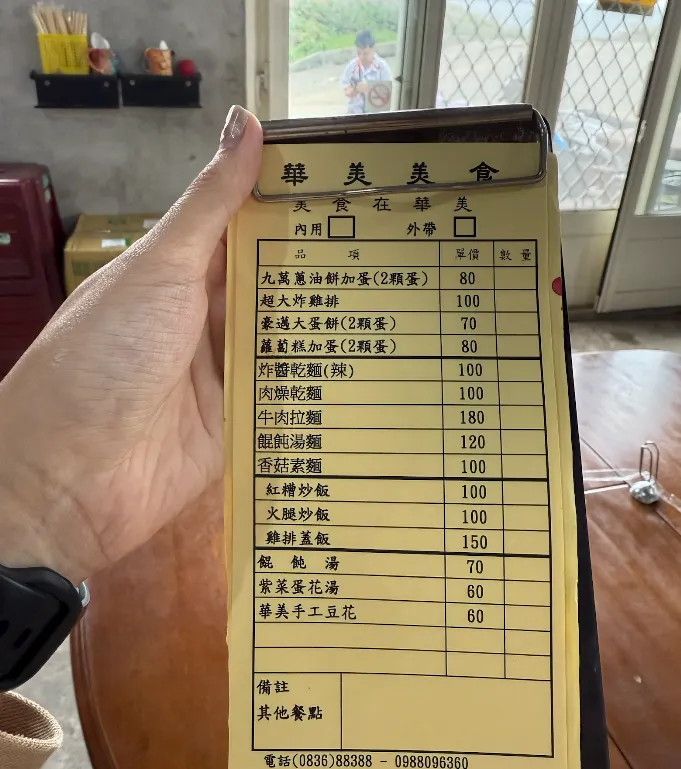 華美美食
美食在華美
內用 外帶
品項 單價 數量
九萬蔥油餅加蛋(2顆蛋) 80
超大炸雞排 100
豪邁大蛋餅(2顆蛋) 70
蘿蔔糕加蛋(2顆蛋) 80
炸醬乾麵(辣) 100
肉燥乾麵 100
牛肉拉麵 180
餛飩湯麵 120
香菇素麵 100
紅糟炒飯 100
火腿炒飯 100
雞排蓋飯 150
餛飩湯 70
紫菜蛋花湯 60
華美手工豆花 60
備註
其他餐點
電話(0836)88388 - 0988096360